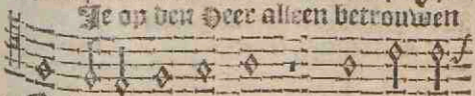 Je op den Heer alleen betrouwen